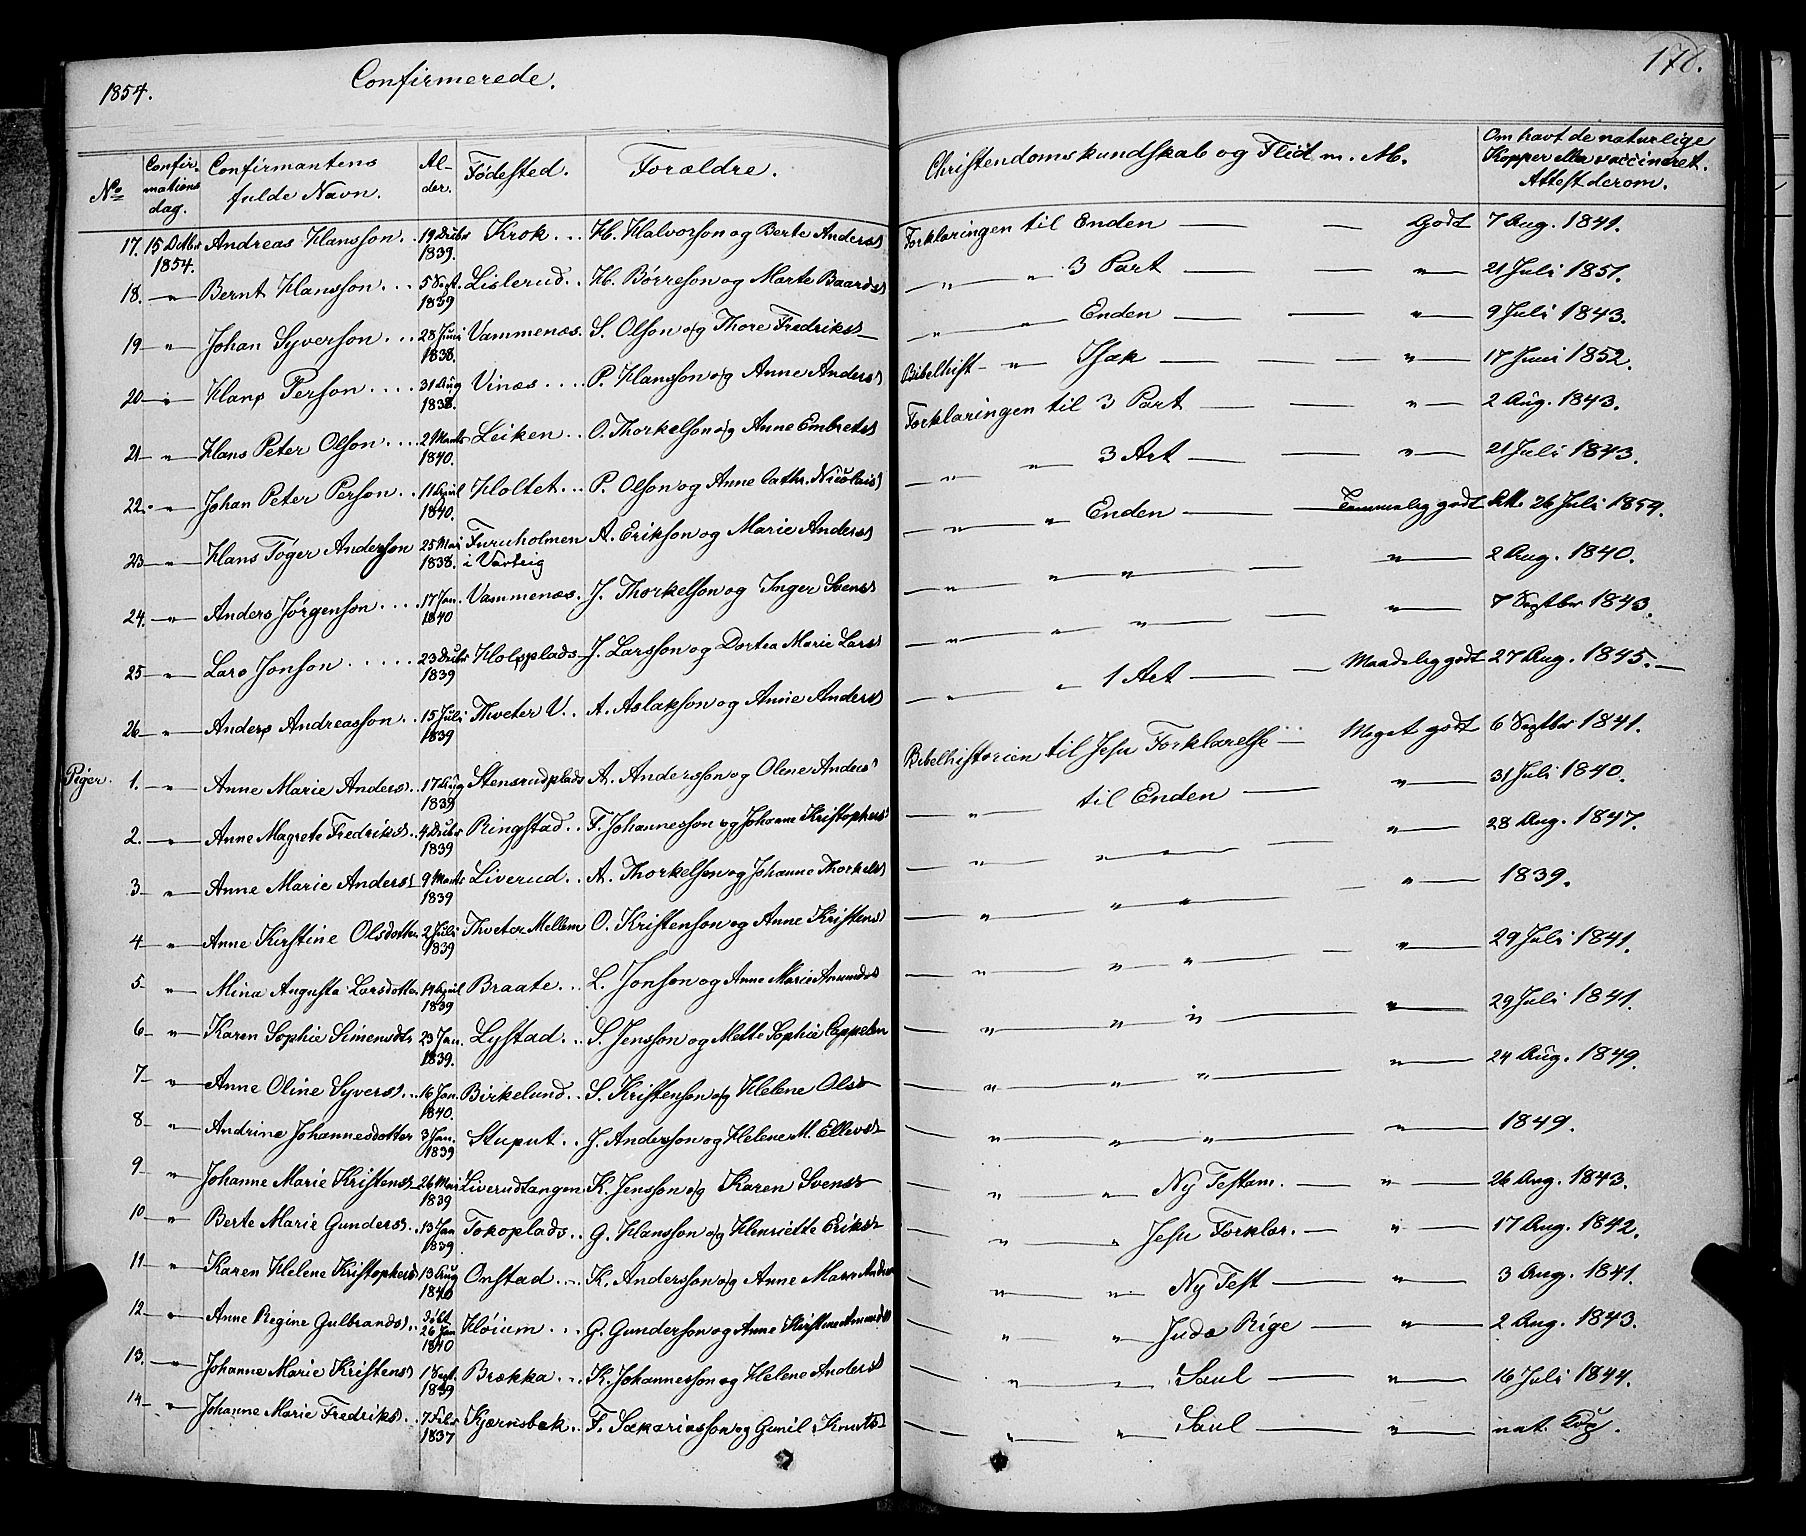 1854. Confirmerede. 178.
No Confirmations dag. Confirmantens fulde Navn. Alder. Fødested. Forældre. Christendomskundskab og Flid m. M. Om havt de naturlige Kopper eller vaccineret. Attest derom.
17. 15 Octbr 1854. Andreas Hansson... 19 Decbr 1839. Krok... H. Halvorson og Berte Anders Forklaringen til Enden — — Godt 7 Aug. 1841.
18. — " — Bernt Hansson... 5 Sept. 1839 Lislerud.. H. Børreson og Marte Baards — " — " 3 Part — — " — 21 Juli 1851.
19 — " — Johan Syverson... 28 Juni 1838. Vammenæs. S. Olson og Thore Fredriks " — " — Enden — — " — 9 Juli 1843.
20 — " — Hans Person.... 31 Aug 1838. Vinæs.... P. Hansson og Anne Anders Bibelhist — " — Isak — — " — 17 Juni 1852.
21 — " — Hans Peter Olson.... 2 Marts 1840. Leiken.. O. Thorkelson og Anne Embrets Forklaringen til 3 Part — — " — 2 Aug. 1843.
22. — " — Johan Peter Person.. 11 April 1840. Holtet... P. Olson og Anne Cathr. Nicolais — " — " 3 Art — — " — 21 Juli 1843.
23 — " — Hans Toger Anderson 25 Mai 1838. Furuholmen i Varteig A. Erikson og Marie Anders — " — " Enden — Temmelig godt Att. 26 Juli 1854.
24. — " — Anders Jørgenson.... 17 Jan. 1840 Vammenæs. J. Thorkelson og Inger Svens — " — " — " — " — 2 Aug. 1840.
25 — " — Lars Jonson...... 23 Decbr 1839 Holsplads J. Larsson og Dortea Marie Lars — " — " — " — " — 7 Septbr 1843.
26 — " — Anders Andreasson.. 15 Juli 1839 Thveter V.. A. Aslakson og Anne Anders — " — " 1 Art — — Maadelig godt 27 Aug. 1845. —
Piger. 1. — " — Anne Marie Anders.. 17 Aug 1839 Stensrudplads A. Andersson og Olene Anders Bibelhistorien til Jesu Forklarelse — Meget godt 6 Septbr 1841.
2. — " — Anne Magrete Fredriks.. 4 Decbr 1839 Ringstad.. F. Johannesson og Johanne Kristophers — " — til Enden — " — 31 Juli 1840.
3 — " — Anne Marie Anders 9 Marts 1839 Liverud.. A. Thorkelson og Johanne Thorkels — " — " — " — " — 28 Aug. 1847.
4 — " — Anne Kirstine Olsdotter 2 Juli 1839 Thveter Mellem O. Kristenson og Anne Kristens — " — " — " — " — 1839.
5 — " — Mina Augusta Larsdotter 19 April 1839 Braate... L. Jonson og Anne Marie Amunds — " — " — " — " — 29 Juli 1841.
6 — " — Karen Sophie Simensdtr 23 Jan. 1839. Lystad... S. Jensson og Mette Sophie Cappelen — " — " — " — " — 29 Juli 1841.
7 — " — Anne Oline Syvers... 16 Jan. 1840. Birkelund.. S. Kristenson og Helene Ols — " — " — " — " — 24 Aug. 1849.
8 — " Andrine Johannesdotter 3 Jan. 1839 Stuput... J. Andersson og Helene M. Ellevs — " — " — " — " — 1849.
9 — " Johanne Marie Kristens 26 Mai 1839 Liverudtangen K. Jensson og Karen Svens " — " — Ny Testam. — " — 26 Aug. 1843.
10 — " Berte Marie Gunders. 13 Jan 1839 Tokoplads.. G. Hansson og Henriette Eriks " — " Jesu Forklar. — " — 17 Aug. 1842.
11 — " Karen Helene Kristophers 13 Aug 1840 Onstad... K. Andersson og Anne Marie Anders " — " — Ny Test — " — 3 Aug. 1841.
12 — " Anne Regine Gulbrands.. døbt 26 Jan 1840 Høium... G. Gunderson og Anne Kirstine Amunds " — " Juda Rige — " — 2 Aug. 1843.
13. — " — Johanne Marie Kristens 1 Sept. 1839 Brækka... K. Johannesson og Helene Anders " — " — Saul — " — 16 Juli 1844.
14 — " — Johanne Marie Fredriks.. 7 Febr 1837 Kjærnsbæk.. F. Sakariasson og Gunil Knuts " — " — Saul — " — nat. Kop.